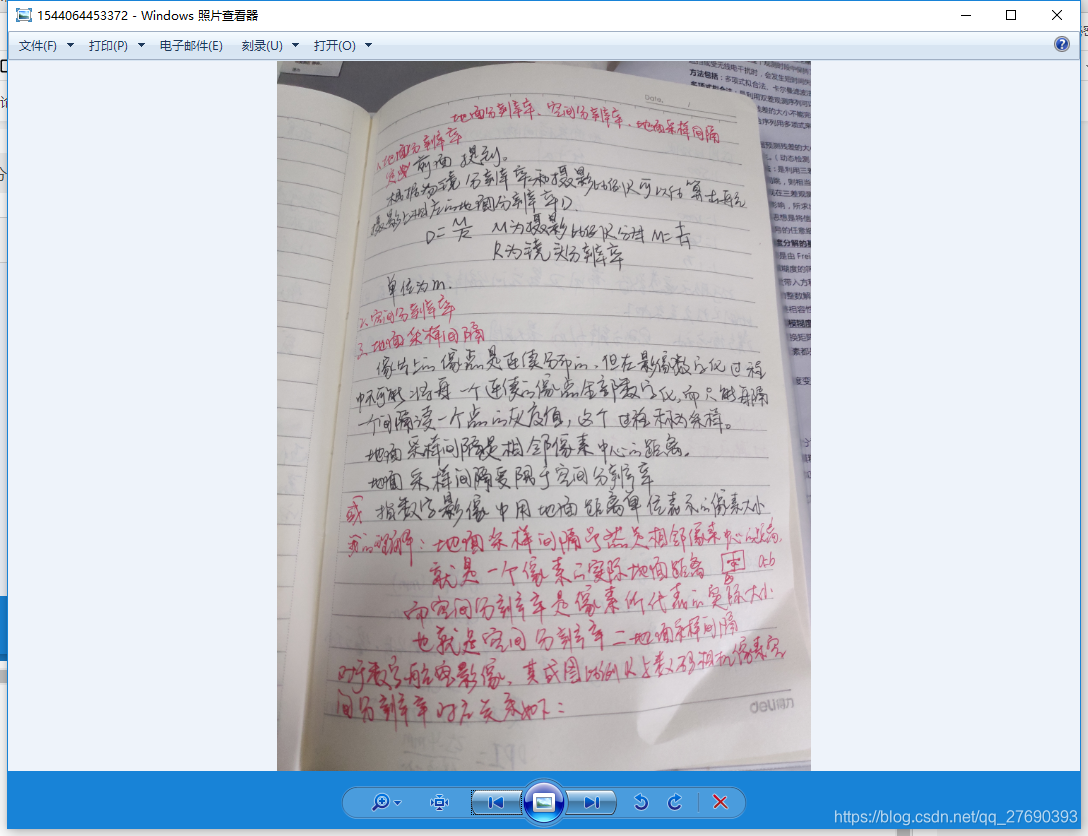 1544064453372 - Windows 照片查看器
文件(F) 打印(P) 电子邮件(E) 刻录(U) 打开(O)
Date.
地面分辨率、空间分辨率、地面采样间隔
1.地面分辨率
前面提到。
根据物镜分辨率和摄影比例尺可以估算出航空
摄影上相应的地面分辨率D.
D=M/R M为摄影比例尺分母 M=
R为镜头分辨率
单位为m.
2.空间分辨率
3.地面采样间隔
像片上的像点是连续分布的,但在影像数字化过程
中不可能将每一个连续的像点全部数字化,而只能每隔
一个间隔读一个点的灰度值,这个过程称为采样。
地面采样间隔是相邻像素中心的距离。
地面采样间隔受限于空间分辨率
或 指数字影像中用地面距离单位表示的像素大小
我的理解:地面采样间隔既然是相邻像素中心的距离,
就是一个像素的实际地面距离
而空间分辨率是像素所代表的实际大小
也就是空间分辨率=地面采样间隔
对于数字航空影像,其成图比例尺与数码相机像素空
间分辨率对应关系如下:
deli
https://blog.csdn.net/qq_27690393